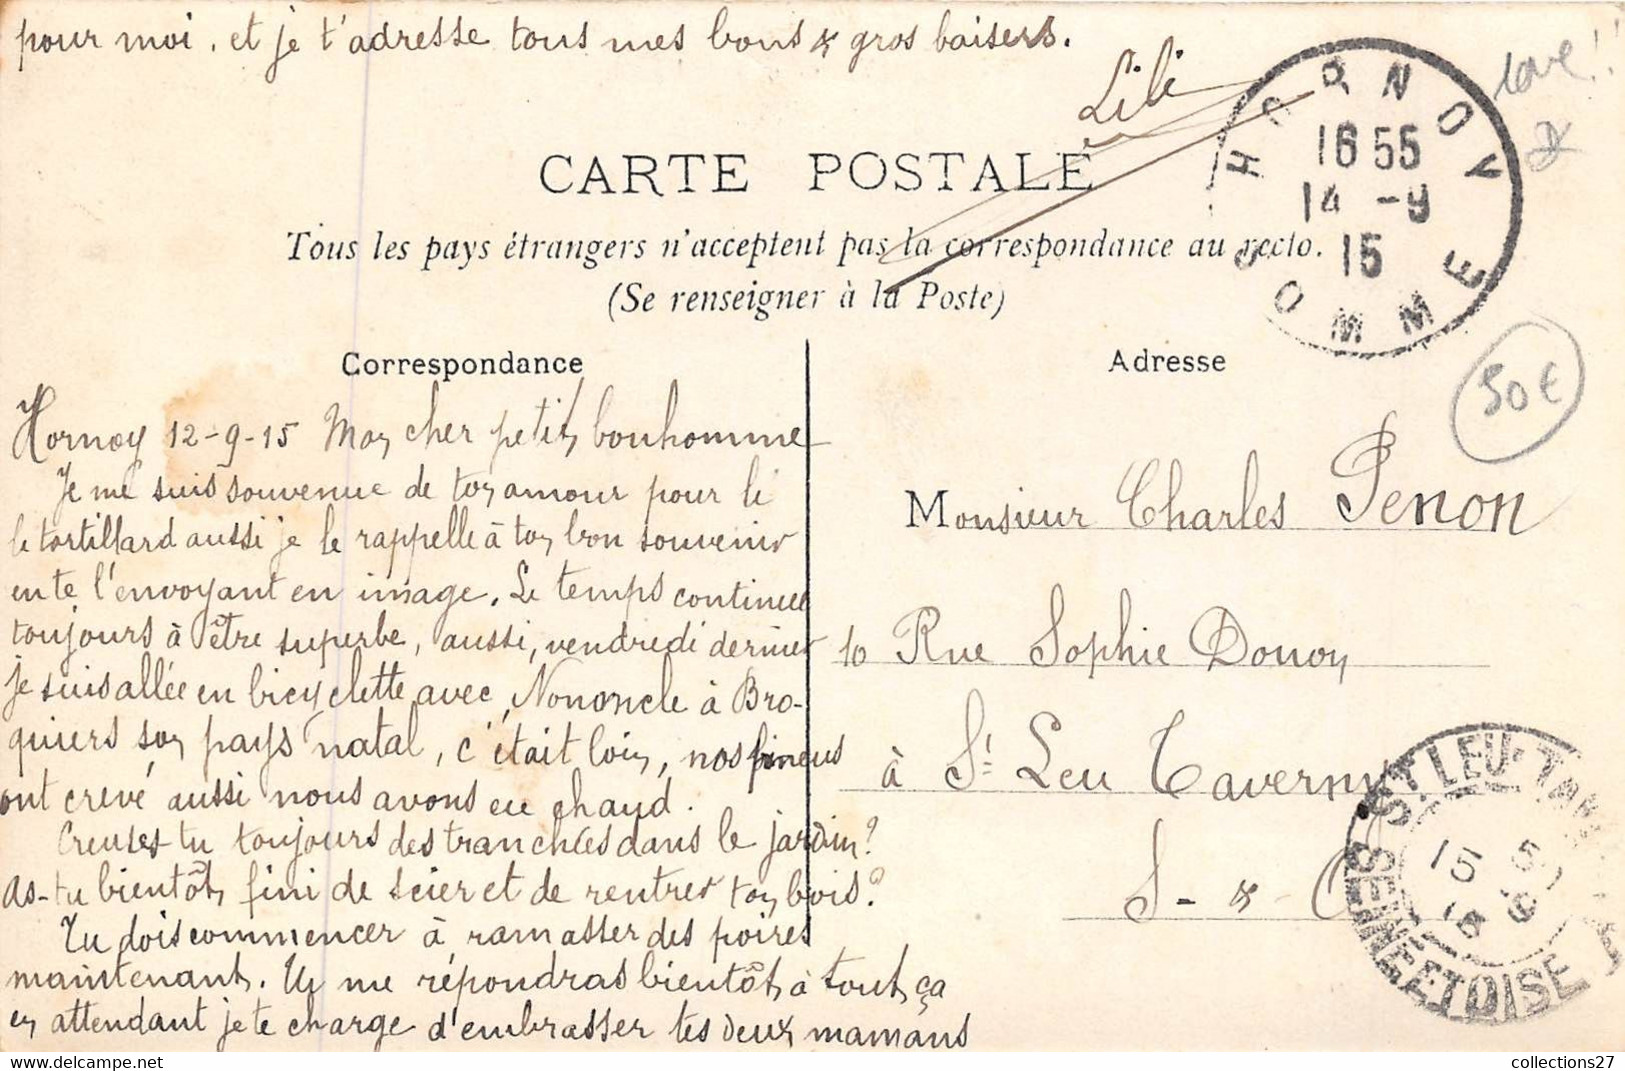 pour moi. et je t'adresse tous mes bons & gros baisers.
Lili
love!!
CARTE POSTALE
Tous les pays étrangers n'acceptent pas la correspondance au recto.
(Se renseigner à la Poste)
HORNOY
16 55
14 -9
15
SOMME
50€
Correspondance
Hornoy 12-9-15 Mon cher petit bonhomme
Je me suis souvenue de ton amour pour le
le tortillard aussi je le rappelle à ton bon souvenir
en te l'envoyant en image. Le temps continue
toujours à être superbe, aussi, vendredi dernier
je suis allée en bicyclette avec Nononcle à Bro-
quiers son pays natal, c'était loin, nos pneus
ont crevé aussi nous avons eu chaud.
Creuses-tu toujours des tranchées dans le jardin?
As-tu bientôt fini de scier et de rentrer ton bois?
Tu dois commencer à ramasser des poires
maintenant. Tu me répondras bientôt à tout ça
en attendant je te charge d'embrasser tes deux mamans
Adresse
Monsieur Charles Penon
10 Rue Sophie Donon
à St Leu Taverny
S-&-O
ST LEU-TAV
15
15 9
SEINE ET OISE
collections27